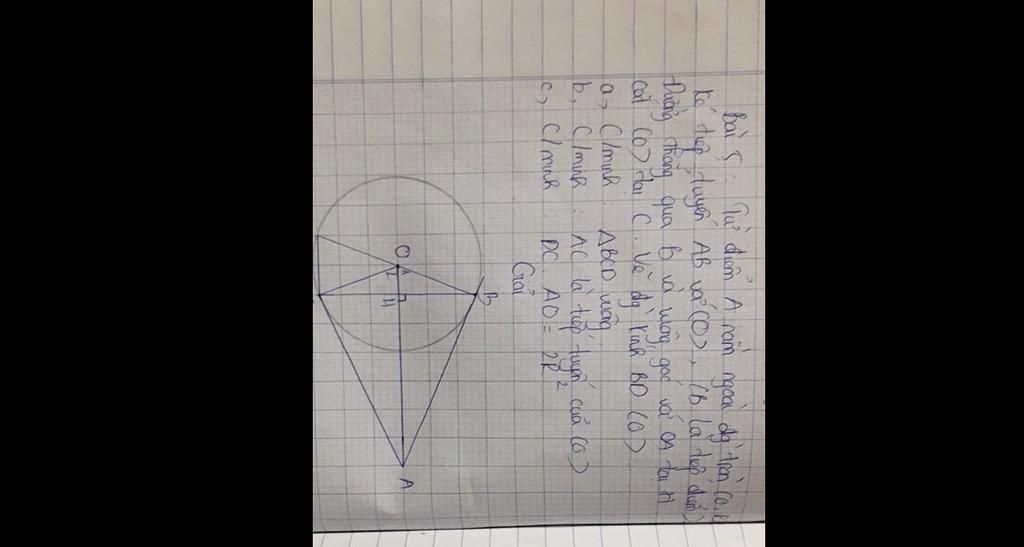 Bài 5: Từ điểm A nằm ngoài đg tròn (O,R)
kẻ tiếp tuyến AB với (O), (B là tiếp điểm)
Đường thẳng qua B và vuông góc với OA tại H
cắt (O) tại C. Vẽ đg kính BD (O)
a, C/minh: ΔBCD vuông
b, C/minh: AC là tiếp tuyến của (O)
c, C/minh: DC. AO = 2R²
Giải
B
O
H
A